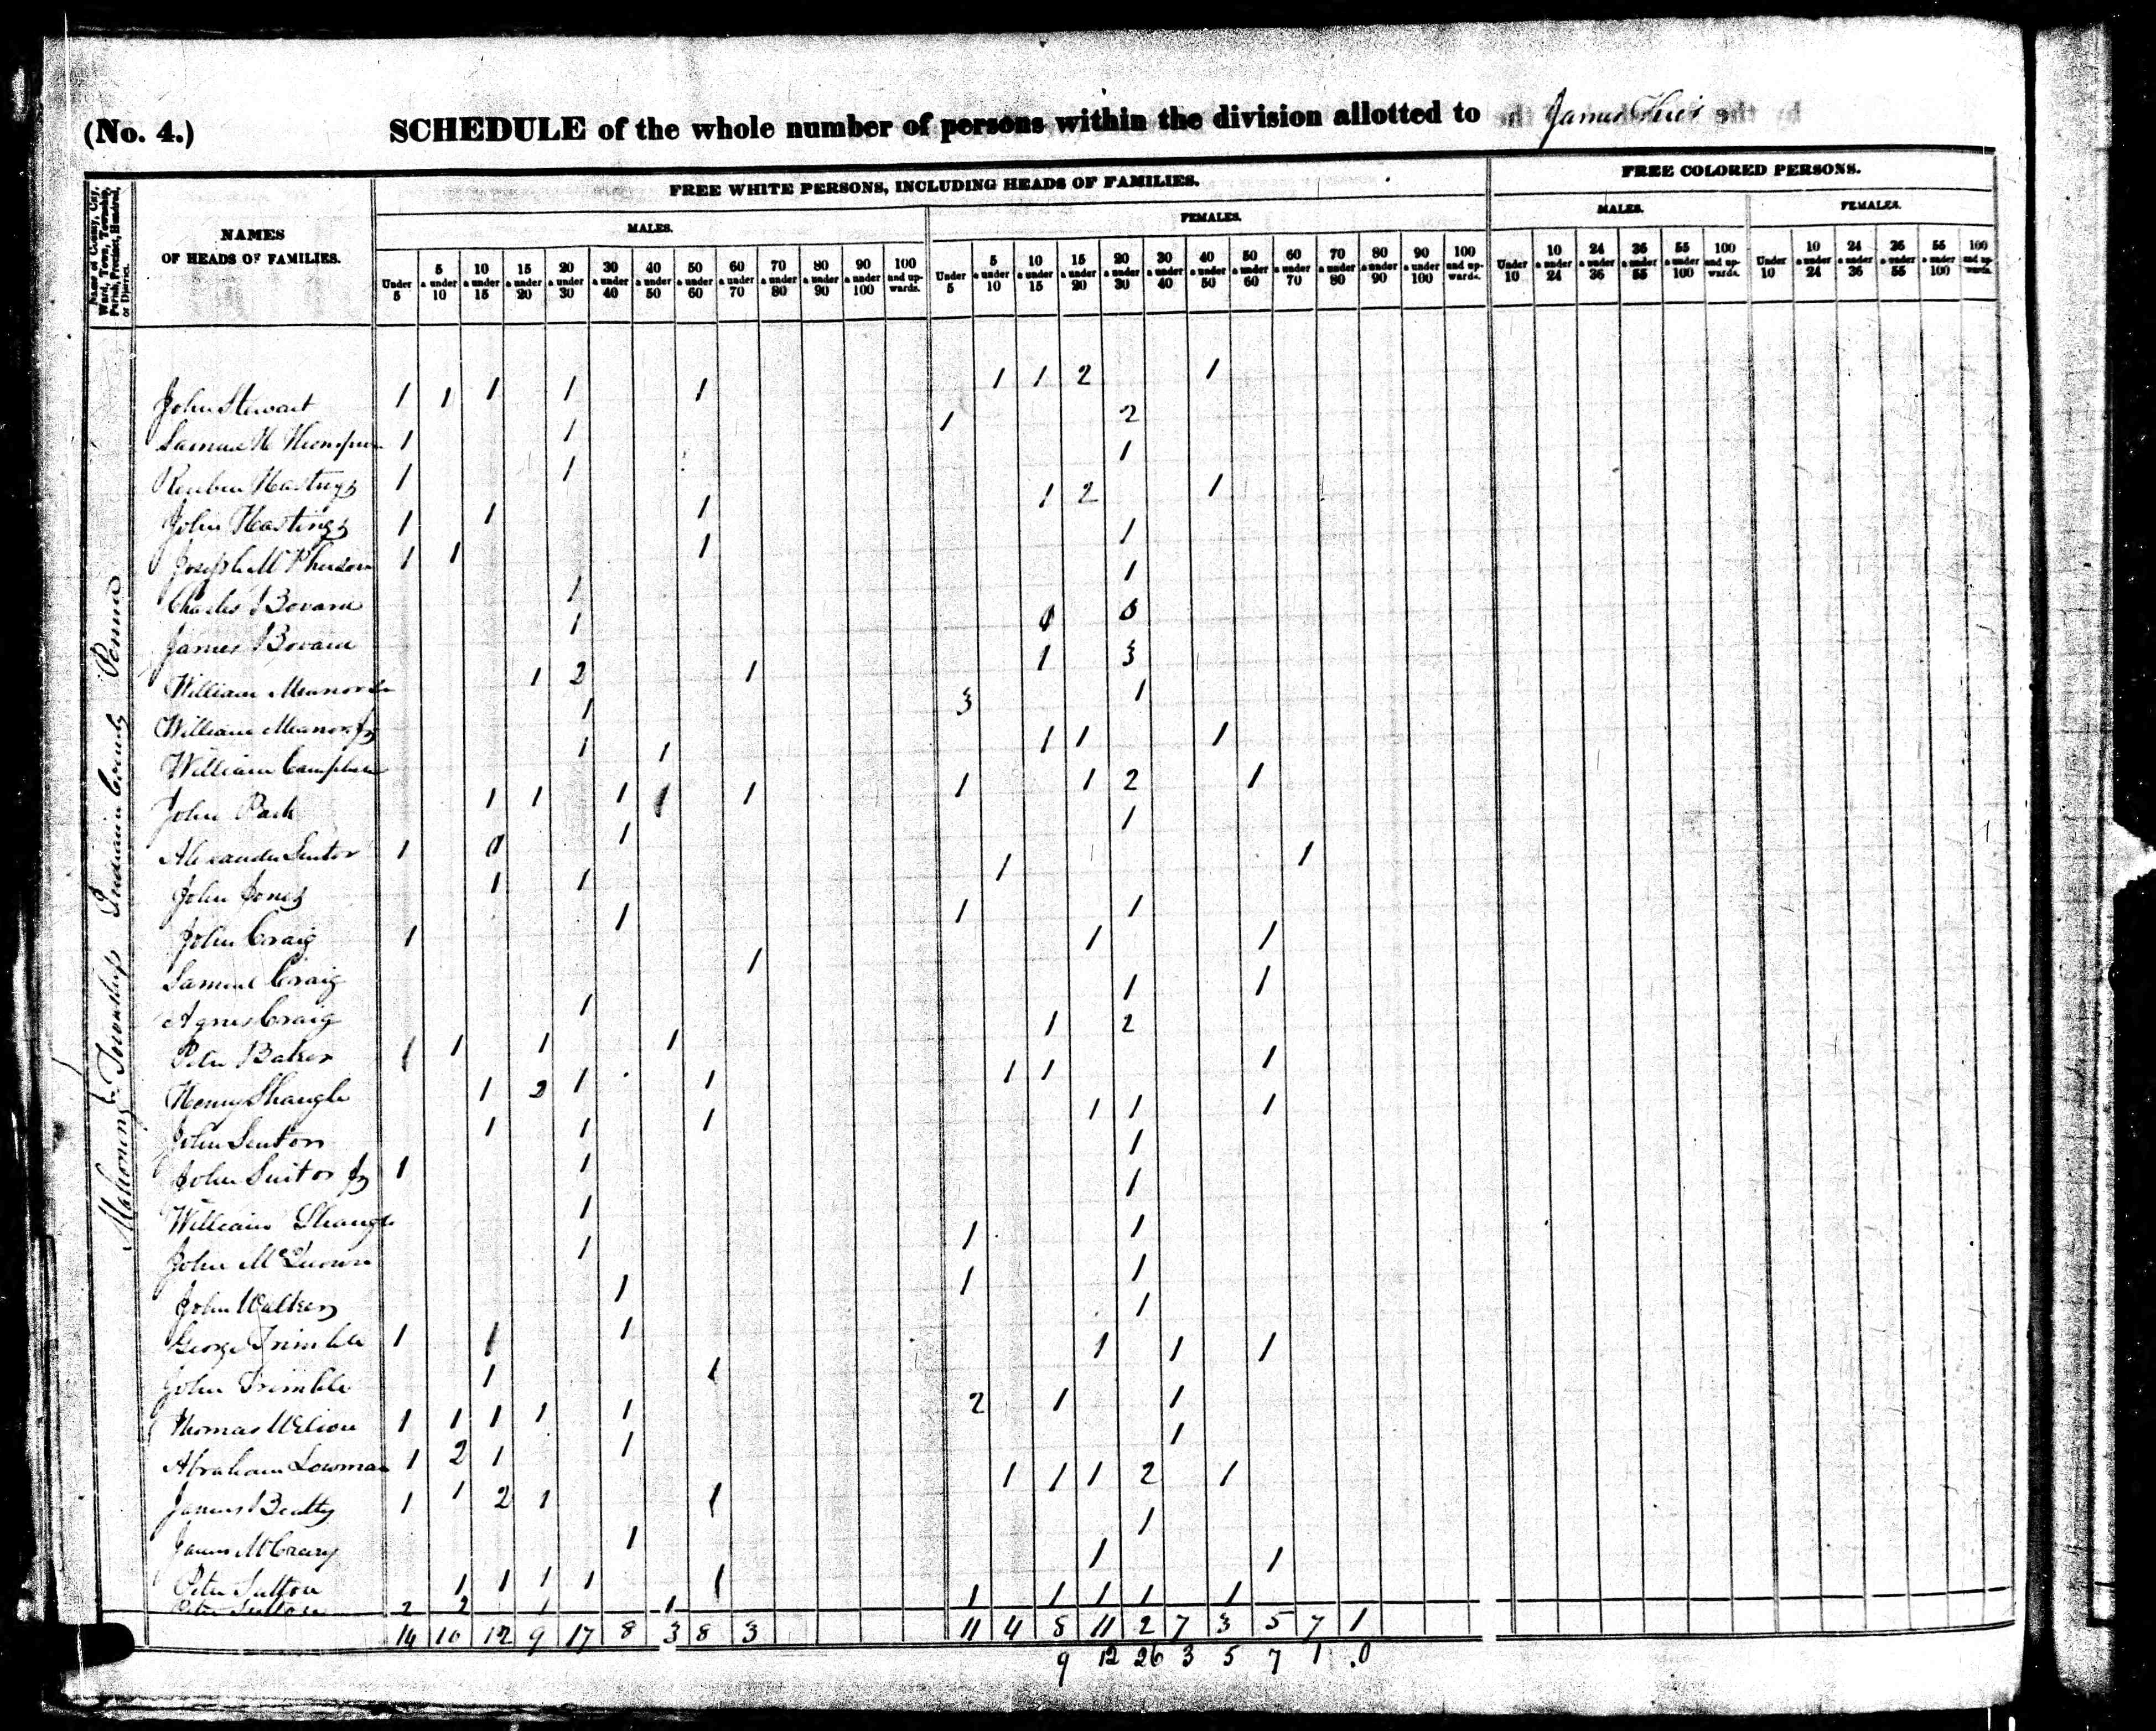 (No. 4.) SCHEDULE of the whole number of persons within the division allotted to James
FREE WHITE PERSONS, INCLUDING HEADS OF FAMILIES. FREE COLORED PERSONS.
MALES. FEMALES. MALES. FEMALES.
Name of County, City, Ward, Town, Township, Parish, Precinct, Hundred, or District.
NAMES
OF HEADS OF FAMILIES.
Under 5 5 & under 10 10 & under 15 15 & under 20 20 & under 30 30 & under 40 40 & under 50 50 & under 60 60 & under 70 70 & under 80 80 & under 90 90 & under 100 100 and upwards. Under 5 5 & under 10 10 & under 15 15 & under 20 20 & under 30 30 & under 40 40 & under 50 50 & under 60 60 & under 70 70 & under 80 80 & under 90 90 & under 100 100 and upwards. Under 10 10 & under 24 24 & under 36 36 & under 55 55 & under 100 100 and upwards. Under 10 10 & under 24 24 & under 36 36 & under 55 55 & under 100 100 and upwards.
Mahoning Township Indiana County Penna
John Stewart 1 1 1 1 1 1 1 2 1
Samuel H Thompson 1 1 1 2
Reuben Hastings 1 1 1
John Hastings 1 1 1 1 2 1
Joseph McPherson 1 1 1 1
Charles Bovard 1 1
James Bovard 1
William Meanor 1 2 1 1 3
William Meanor Jr 1 3 1
William Campbell 1 1 1 1 1
John Park 1 1 1 1 1 1 1 2 1
Alexander 1 1 1
John Jones 1 1 1 1
John Craig 1 1 1 1
Samuel Craig 1 1 1
Agnes Craig 1 1 1
Peter Baker 1 1 1 1 1 2
Henry 1 2 1 1 1 1 1
John 1 1 1 1 1 1
John Jr 1 1 1
William 1 1
John 1 1 1
John Walker 1 1 1
George Trimble 1 1 1 1
John Trimble 1 1 1 1 1
Thomas Wilson 1 1 1 1 1 2 1 1
Abraham Lowman 1 2 1 1 1
James Beatty 1 1 2 1 1 1 1 1 2 1
James McCreary 1 1
Peter Sutton 1 1 1 1 1 1 1
Peter Sutton 2 2 1 1 1 1 1 1 1
14 10 12 9 17 8 3 8 3 11 4 8 11 2 7 3 5 7 1
9 12 26 3 5 7 1 .0